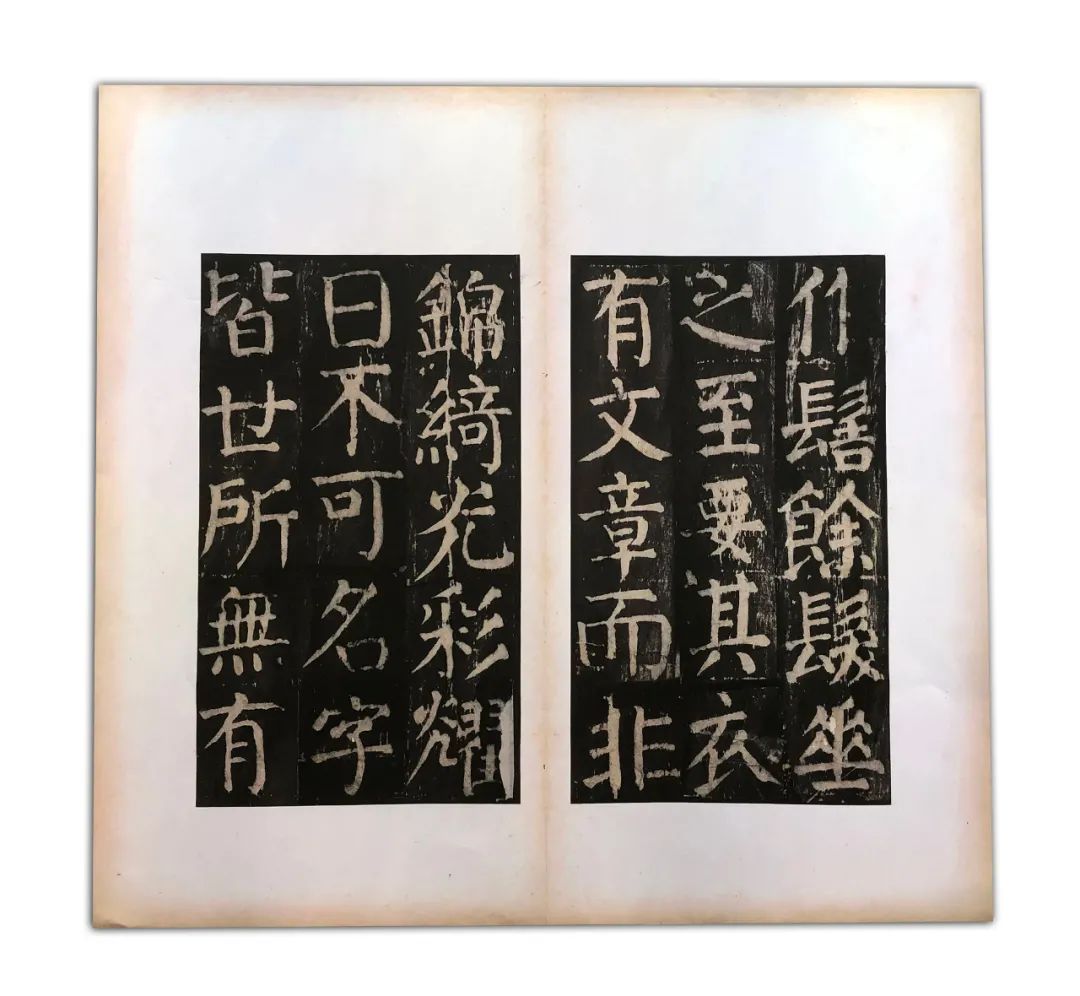 髻餘髮垂
之至要其衣
有文章而非
錦綺光彩耀
日不可名字
皆世所無有